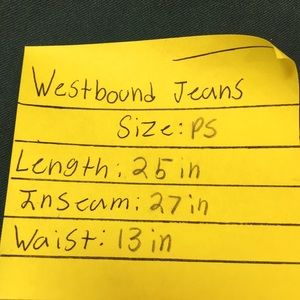 Westbound Jeans
Size: PS
Length: 25 in
Inseam: 27 in
Waist: 13 in